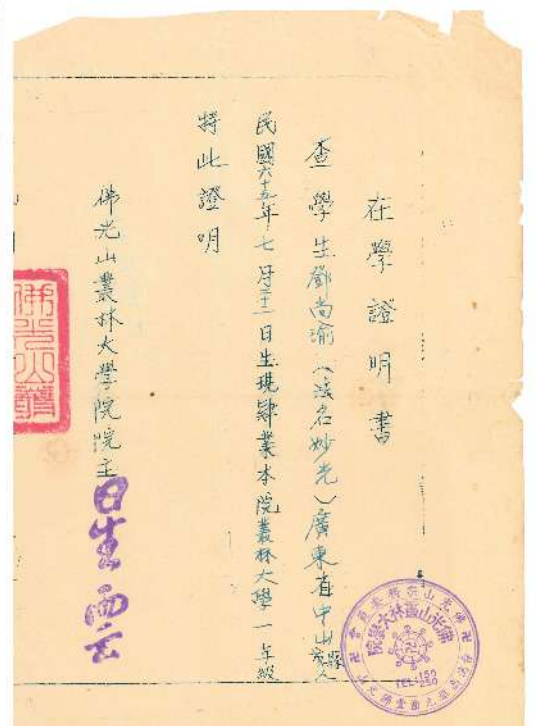 在學證明書
查學生鄧尚瑜（法名妙光）廣東省中山縣人
民國六十五年七月二十二日生現肄業本院叢林大學一年級
特此證明
佛光山叢林大學院院主
星雲
佛光山叢林大學院